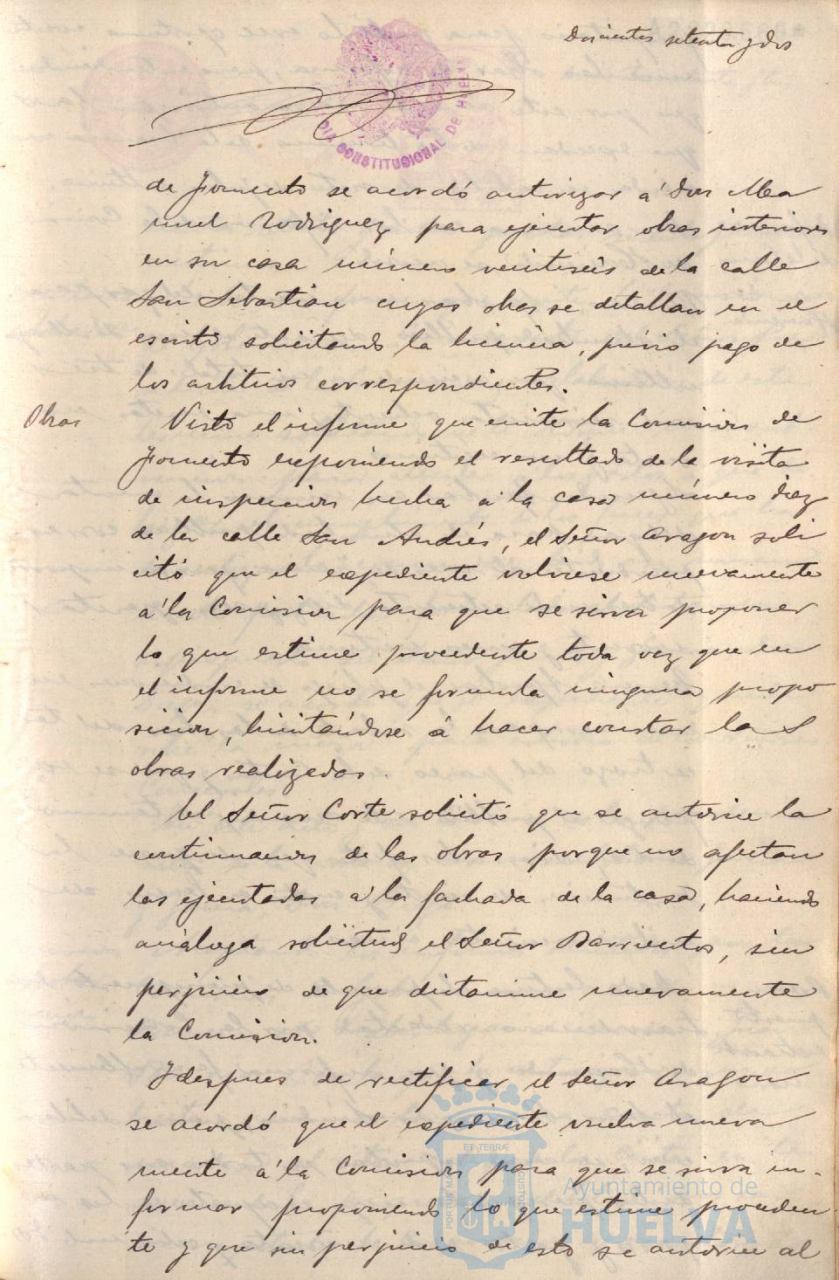 Doscientos setenta y dos
DIA CONSTITUCIONAL DE HUEL
de Fomento se acordó autorizar á Don Ma
nuel Rodriguez para ejecutar obras interiores
en su casa número veintiseis de la calle
San Sebastian cuyas obras se detallan en el
escrito solicitando la licencia, previo pago de
los arbitrios correspondientes.
Obras
Visto el informe que emite la Comision de
Fomento exponiendo el resultado de la visita
de inspeccion hecha á la casa número diez
de la calle San Andrés, el Señor Aragon soli
citó que el expediente volviese nuevamente
á la Comision para que se sirva proponer
lo que estime procedente toda vez que en
el informe no se formula ninguna propo
sicion, limitándose á hacer constar las
obras realizadas.
El Señor Corte solicitó que se autorice la
continuacion de las obras porque no afectan
las ejecutadas á la fachada de la casa, haciendo
análoga solicitud el Señor Barrientos, sin
perjuicio de que dictamine nuevamente
la Comision.
Y despues de rectificar el Señor Aragon
se acordó que el expediente vuelva nueva
mente á la Comision para que se sirva in-
formar proponiendo lo que estime proceden
te y que sin perjuicio de esto se autorice al
Ayuntamiento de
HUELVA